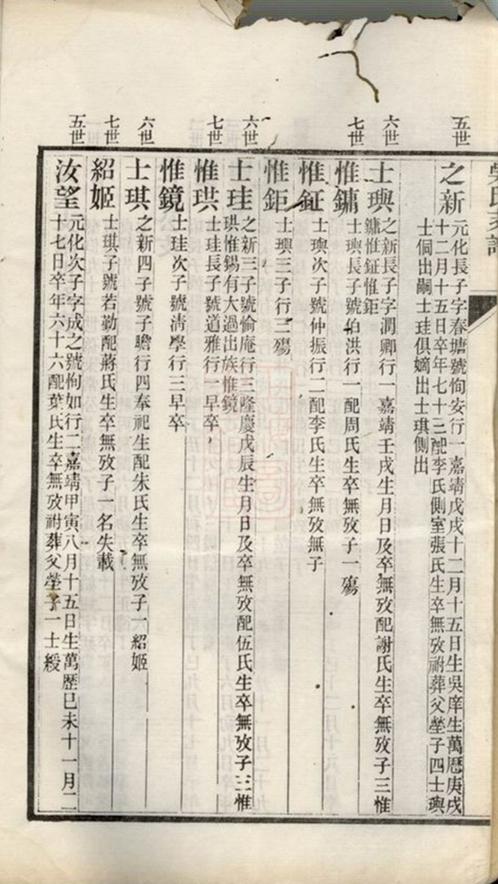 五世
之新
元化長子字春塘號恂安行一嘉靖戊戌十二月十五日生吳庠生萬曆庚戌
十二月十五日卒年七十三配李氏側室張氏生卒無攷祔葬父塋子四士璵
士侗出嗣士珪俱嫡出士琪側出
六世
士璵
之新長子字潤卿行一嘉靖壬戌生月日及卒無攷配謝氏生卒無攷子三惟
鏞惟鉦惟鉅
七世
惟鏞
士璵長子號伯洪行一配周氏生卒無攷子一殤
惟鉦
士璵次子號仲振行二配李氏生卒無攷無子
惟鉅
士璵三子行三殤
六世
士珪
之新三子號愉庵行三隆慶戊辰生月日及卒無攷配伍氏生卒無攷子三惟
珙惟錫有大過出族惟鏡
七世
惟珙
士珪長子號道雅行一早卒
惟鏡
士珪次子號清學行三早卒
六世
士琪
之新四子號子瞻行四奉祀生配朱氏生卒無攷子一紹姬
七世
紹姬
士琪子號若勤配蔣氏生卒無攷子一名失載
五世
汝望
元化次子字成之號恂如行二嘉靖甲寅八月十五日生萬歷己未十一月二
十七日卒年六十六配葉氏生卒無攷祔葬父塋子一士綬